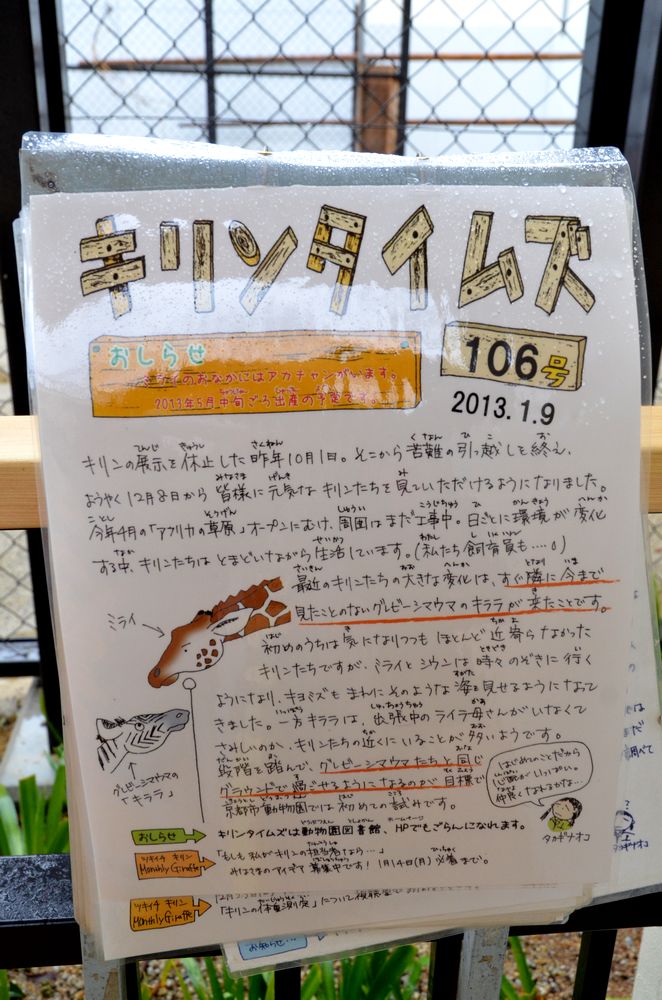 キリンタイムズ
おしらせ
ミライのおなかにはアカチャンがいます。
2013年5月中旬ごろ出産の予定です。
106号
2013.1.9
キリンの展示を休止した昨年10月1日。そこから苦難の引っ越しを終え、
ようやく12月8日から皆様に元気なキリンたちを見ていただけるようになりました。
今年4月の「アフリカの草原」オープンにむけ、周囲はまだ工事中。日ごとに環境が変化
する中、キリンたちはとまどいながら生活しています。(私たち飼育員も・・・。)
最近のキリンたちの大きな変化は、すぐ隣に今まで
見たことのないグレビーシマウマのキララが来たことです。
ミライ
初めのうちは気になりつつもほとんど近寄らなかった
キリンたちですが、ミライとシウンは時々のぞきに行く
ようになり、キヨミズもまれにそのような姿を見せるようになって
きました。一方キララは、出張中のライラ母さんがいなくて
さみしいのか、キリンたちの近くにいることが多いようです。
段階を踏んで、グレビーシマウマたちと同じ
グラウンドで過ごせるようになるのが目標で
京都市動物園では初めての試みです。
グレビーシマウマの
「キララ」
はじめてのことだから
心配がいっぱい。
仲良くなれるかな…
タカギナオコ
おしらせ
キリンタイムズは動物園図書館、HPでもごらんになれます。
ツキイチ キリン
Monthly Giraffe
「もしも私がキリンの担当者なら…」
みなさまのアイデア募集中です!1月14日(月)必着まで。
ツキイチ キリン
Monthly Giraffe
「キリンの体重測定」について
お知らせ…
タカギナオコ